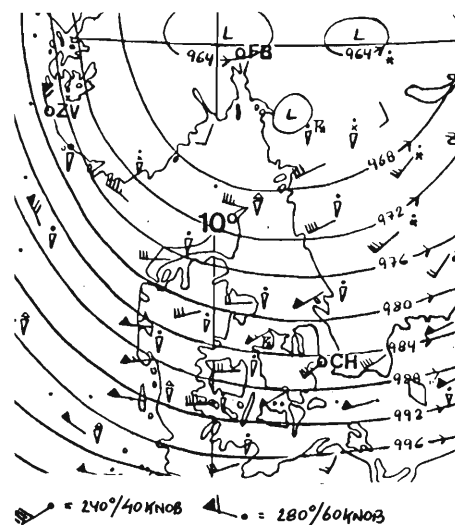 L
L
964
FB
964
ZV
L
R
968
972
10°
976
980
984
CH
988
992
996
= 240°/40 KNOB
= 280°/60 KNOB